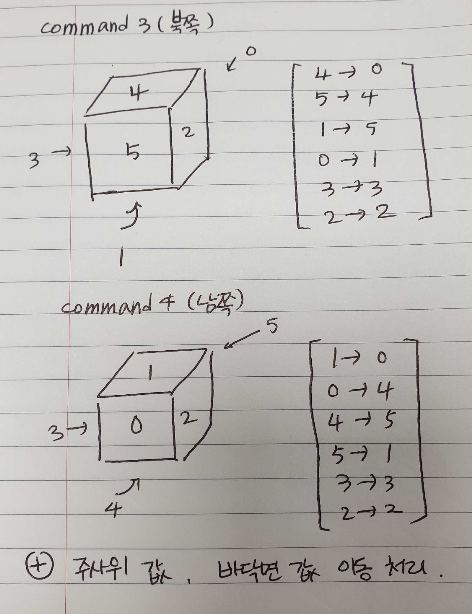 command 3 (북쪽)
0
4
3 → 5 2
1
4 → 0
5 → 4
1 → 5
0 → 1
3 → 3
2 → 2
command 4 (남쪽)
5
1
3 → 0 2
4
1 → 0
0 → 4
4 → 5
5 → 1
3 → 3
2 → 2
⊕ 주사위 값, 바닥면 값 이동 처리.